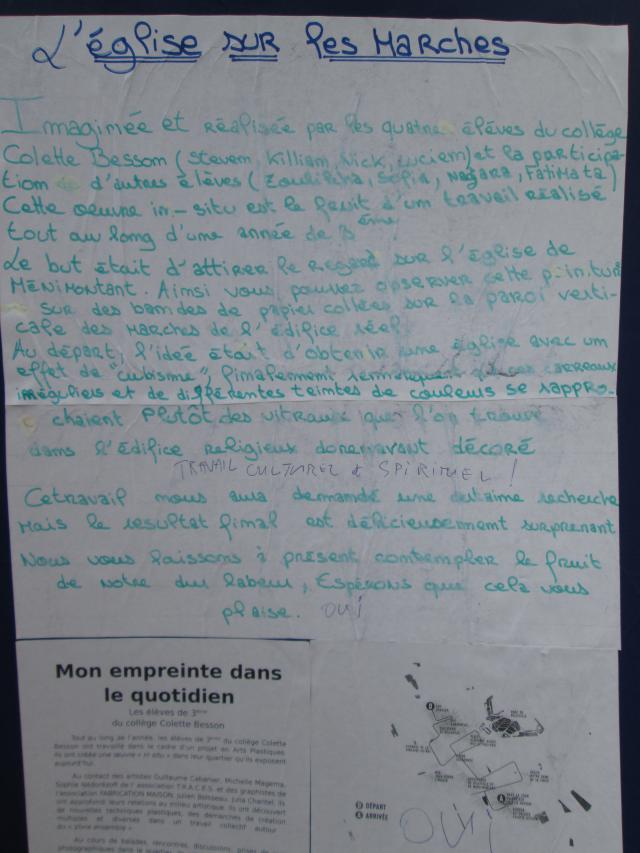 L'église sur les Marches
Imaginée et réalisée par les quatre élèves du collège
Colette Besson (Steven, Killiam, Nick, Lucien) et la participa-
tion d'autres élèves (Zoulikha, Sofia, Nagara, Fatimata)
Cette oeuvre in-situ est le fruit d'un travail réalisé
tout au long d'une année de 3ème
Le but était d'attirer le regard sur l'église de
Ménimontant. Ainsi vous pouvez observer cette peinture
sur des bandes de papier collées sur la paroi verti-
cale des marches de l'édifice réel
Au départ, l'idée était d'obtenir une église avec un
effet de "cubisme", finalement remarquant que ces carreaux
irréguliers et de différentes teintes de couleurs se rappro-
chaient plutôt des vitraux que l'on trouve
dans l'édifice religieux dorenavant décoré
TRAVAIL CULTUREL & SPIRITUEL !
Ce travail nous aura demandé une certaine recherche
Mais le resultat final est délicieusement surprenant
Nous vous laissons à présent contempler le fruit
de notre dur labeur, Espérons que cela vous
plaise. OUI
Mon empreinte dans
le quotidien
Les élèves de 3ème
du collège Colette Besson
Tout au long de l'année, les élèves de 3ème du collège Colette
Besson ont travaillé dans le cadre d'un projet en Arts Plastiques,
ils ont créé une œuvre « in situ » dans leur quartier qu'ils exposent
aujourd'hui.
Au contact des artistes Guillaume Cabanier, Michelle Magerma,
Sophie Nédorézoff de l'association T.R.A.C.E.S. et des graphistes de
l'association FABRICATION MAISON, Julien Boisseau, Julia Chantel, ils
ont approfondi leurs relations au milieu artistique. Ils ont découvert
de nouvelles techniques plastiques, des démarches de création
multiples et diverses dans un travail collectif autour
du « plein ensemble »
Au cours de balades, rencontres, discussions, prises de
photographiques dans le quartier
B
A
DÉPART
ARRIVÉE
OUI